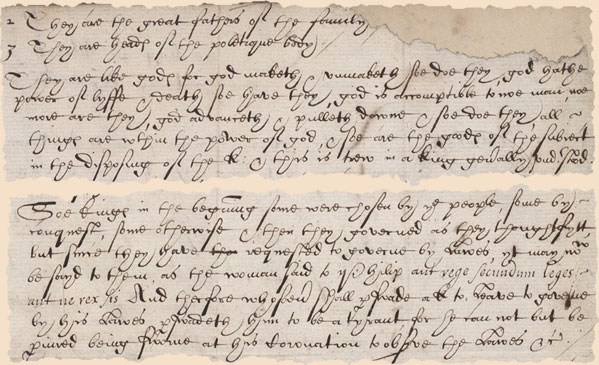 2 They are the great fathers of the family
3 They are heads of the politique body.
They are like gods for god maketh & unmaketh soe doe they, god hathe
power of lyffe & death, soe have they, god is accomptible to noe man, noe
more are they, god advanceth & pulleth downe & soe doe they all
things are within the power of god & soe are the goods of the subiect
in the disposing of the K: & this is trew in a king genally undstod.
Soe Kings in the begining some were chosen by ye people, some by
conquest, some otherwise & then they governed as they thought fytt
but since they have requested to governe by Lawes, yt may now
be sayd to them as the woman said to philip aut rege secundum leges
aut ne rex sis And therfore whosoever shall pswade a K to leave to governe
by his Lawes pswadeth him to be a tyrant for he can not but be
piured being sworne at his Coronation to obsve the Lawes &c: